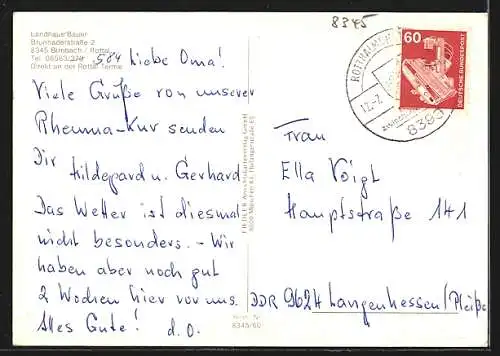 Landhaus Bauer
Brunnaderstraße 2
8345 Birnbach / Rottal
Tel. 08563/
Direkt an der Rottal Terme
584
8345
Liebe Oma!
Viele Grüße von unserer
Rheuma-Kur senden
Dir Hildegard u. Gerhard.
Das Wetter ist diesmal
nicht besonders. - Wir
haben aber noch gut
2 Wochen hier vor uns.
Alles Gute! d. O.
8345/60
60
DEUTSCHE BUNDESPOST
ROTTHALMÜNSTER
12.-7.
Frau
Ella Voigt
Hauptstraße 141
DDR 9624 Langenhessen/Pleiße